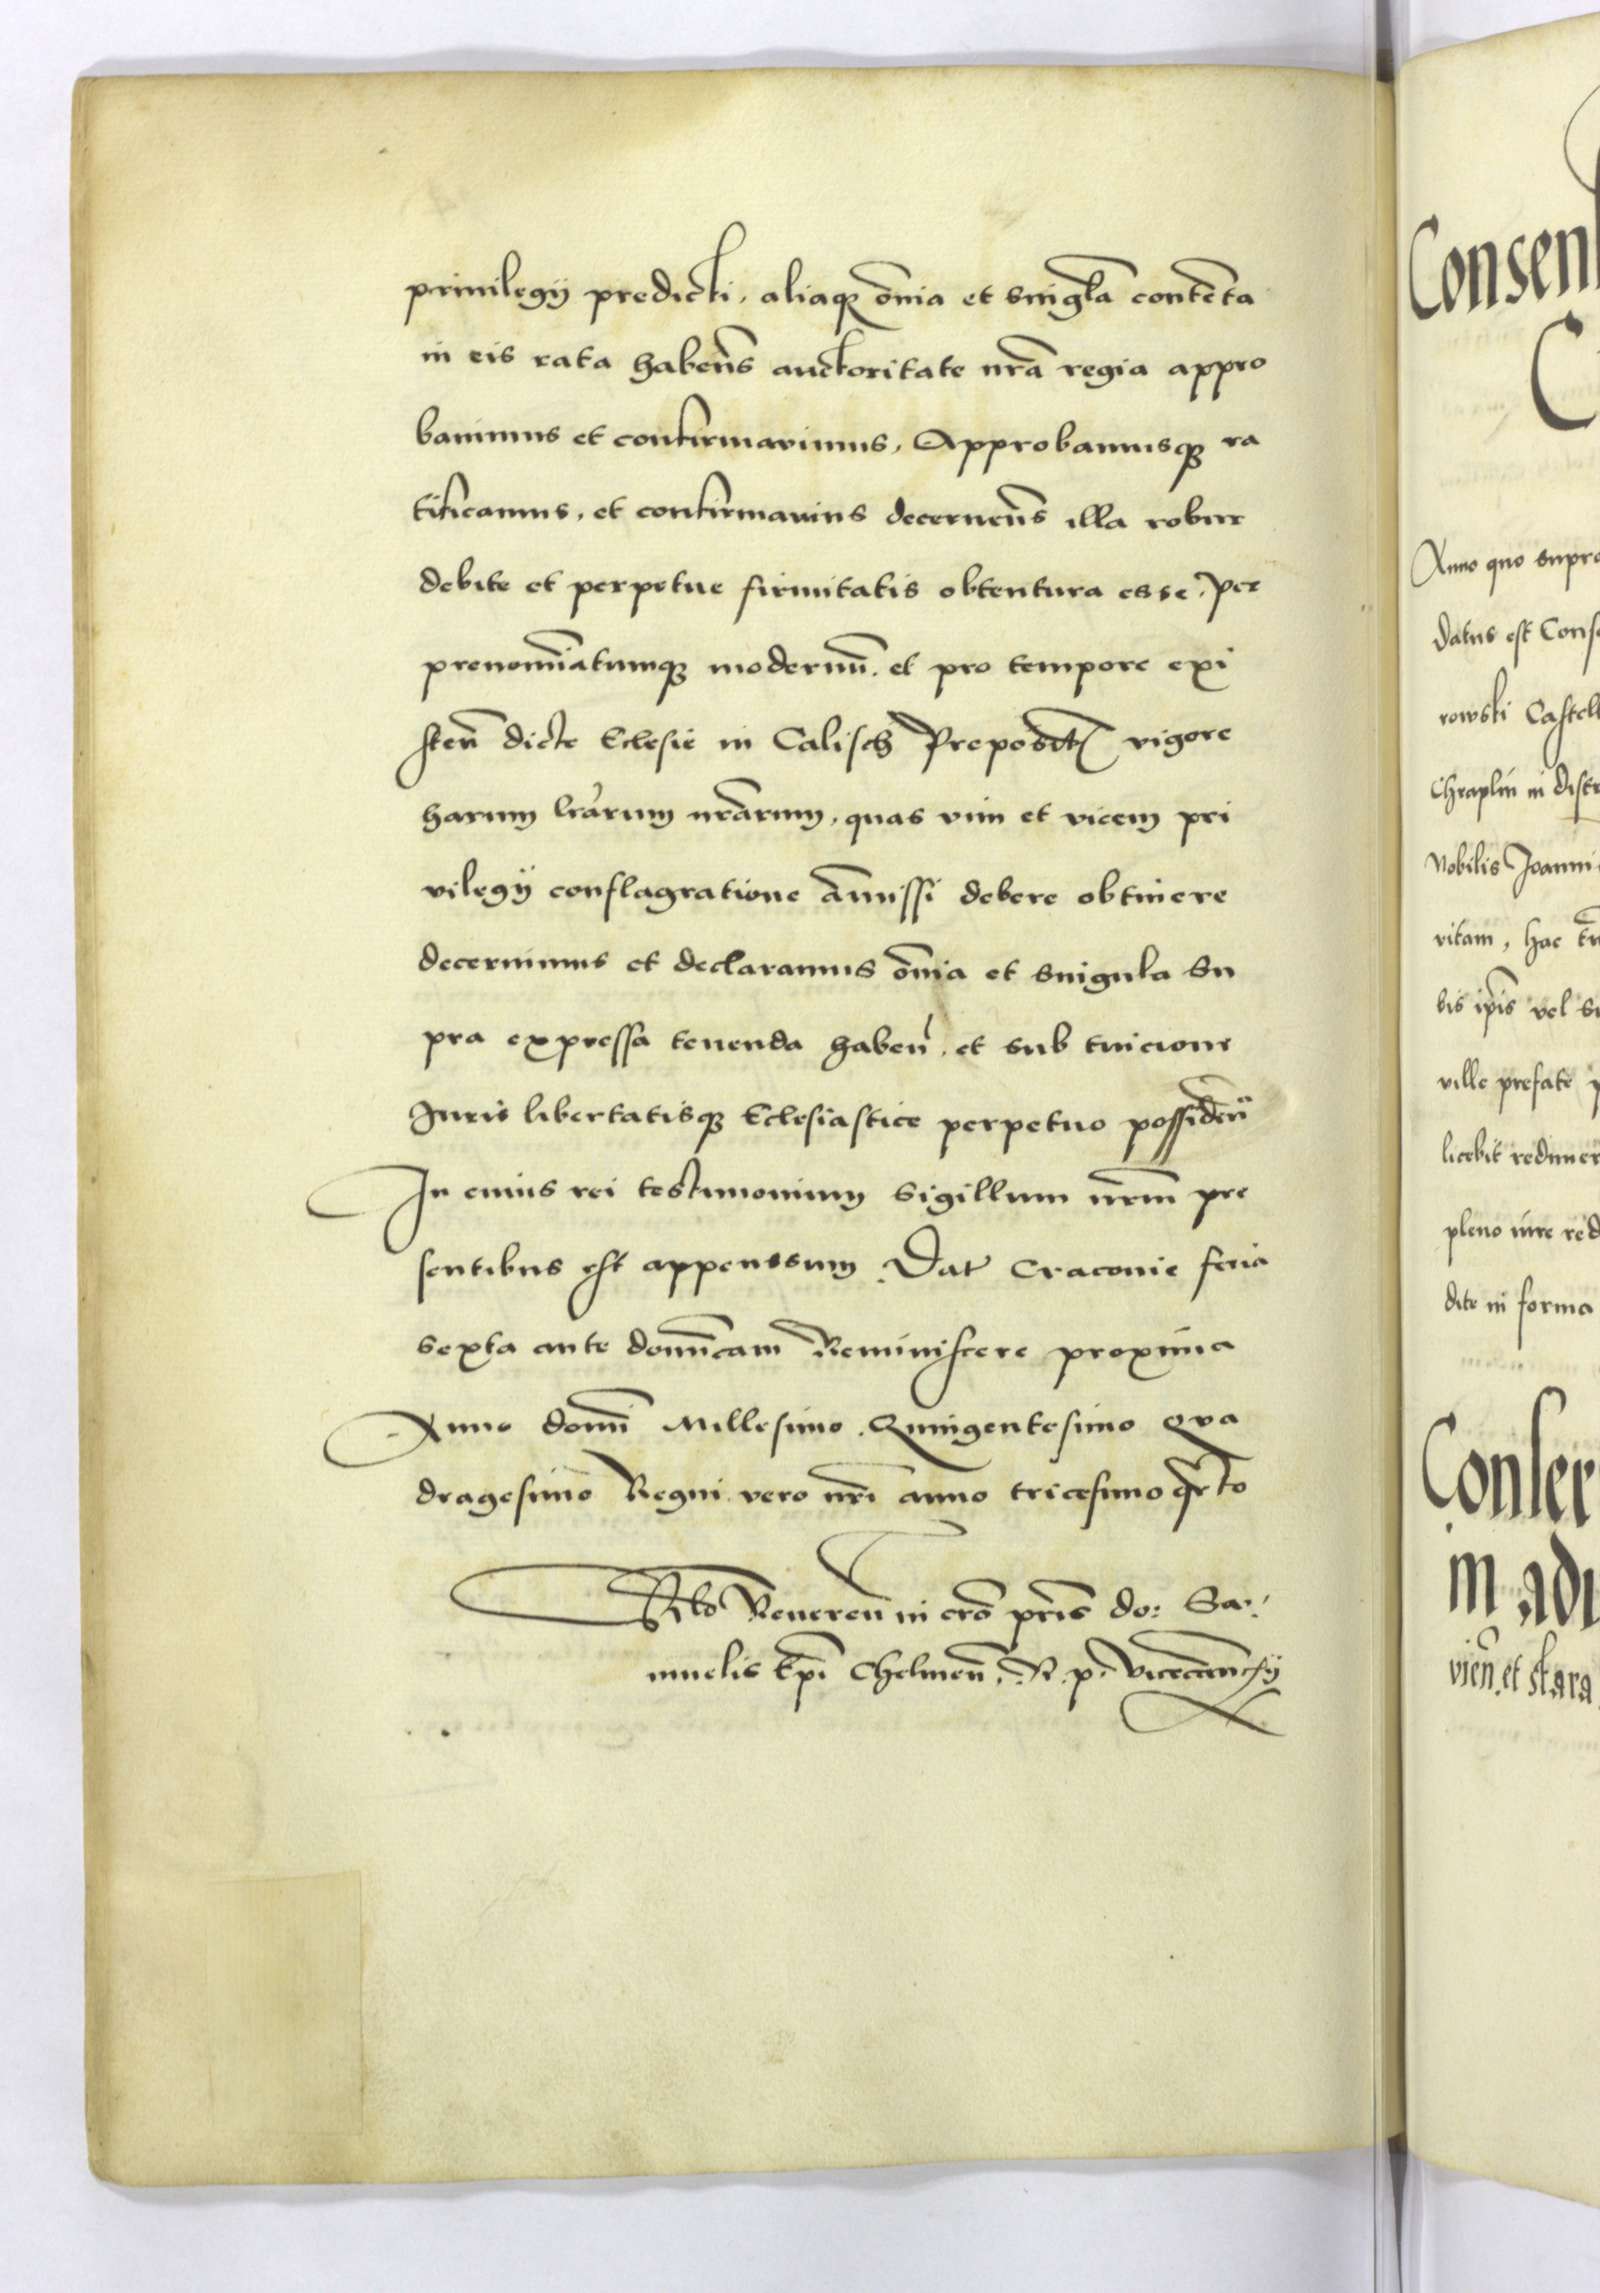 privilegÿ predicti, aliaqȝ õnia et singl̃a contẽta
in eis rata habeñs auctoritate nr̃a regia appro
bavimus et confirmavimus, Approbamusqȝ ra
tificamus, et confirmavius decerneñs illa robur
debite et perpetue firmitatis obtentura esse, per
prenomi͂atumqȝ modernũ. et pro tempore exi
steñ dicte Eclesie in Calisch Preposit vigore
harum lr̃arum nr̃arum, quas vim et vicem pri
vilegÿ conflagratione ãmissi debere obtinere
decernimus et declaramus õnia et singula su
pra expressa tenenda habeñ, et sub tuicione
Iuris libertatisqȝ Eclesiastice perpetuo possideñ
In cuius rei testimonium sigillum nr̃m pre
sentibus est appenssum. Dat Craconie feria
sexta ante domĩcam Reminiscere proxima
Anno domĩ Millesimo. Quingentesimo Qua
dragesimo Regni vero nr̃i anno tricesimo qrto
Rlo Revereñ in cr̃o pr̃is do: Sa:
muelis Ep̃i Chelmeñ. R. p. Vicecancÿ
Consen
C
Anno quo supra
datus est Conse
rowski Castell
Chraplin in distr
Nobilis Joanni
vitam, hac tñ
bis ip̃is vel su
ville prefate p
licebit redimer
pleno iure red
dite in forma
Conser
in adv
vieñ et stara